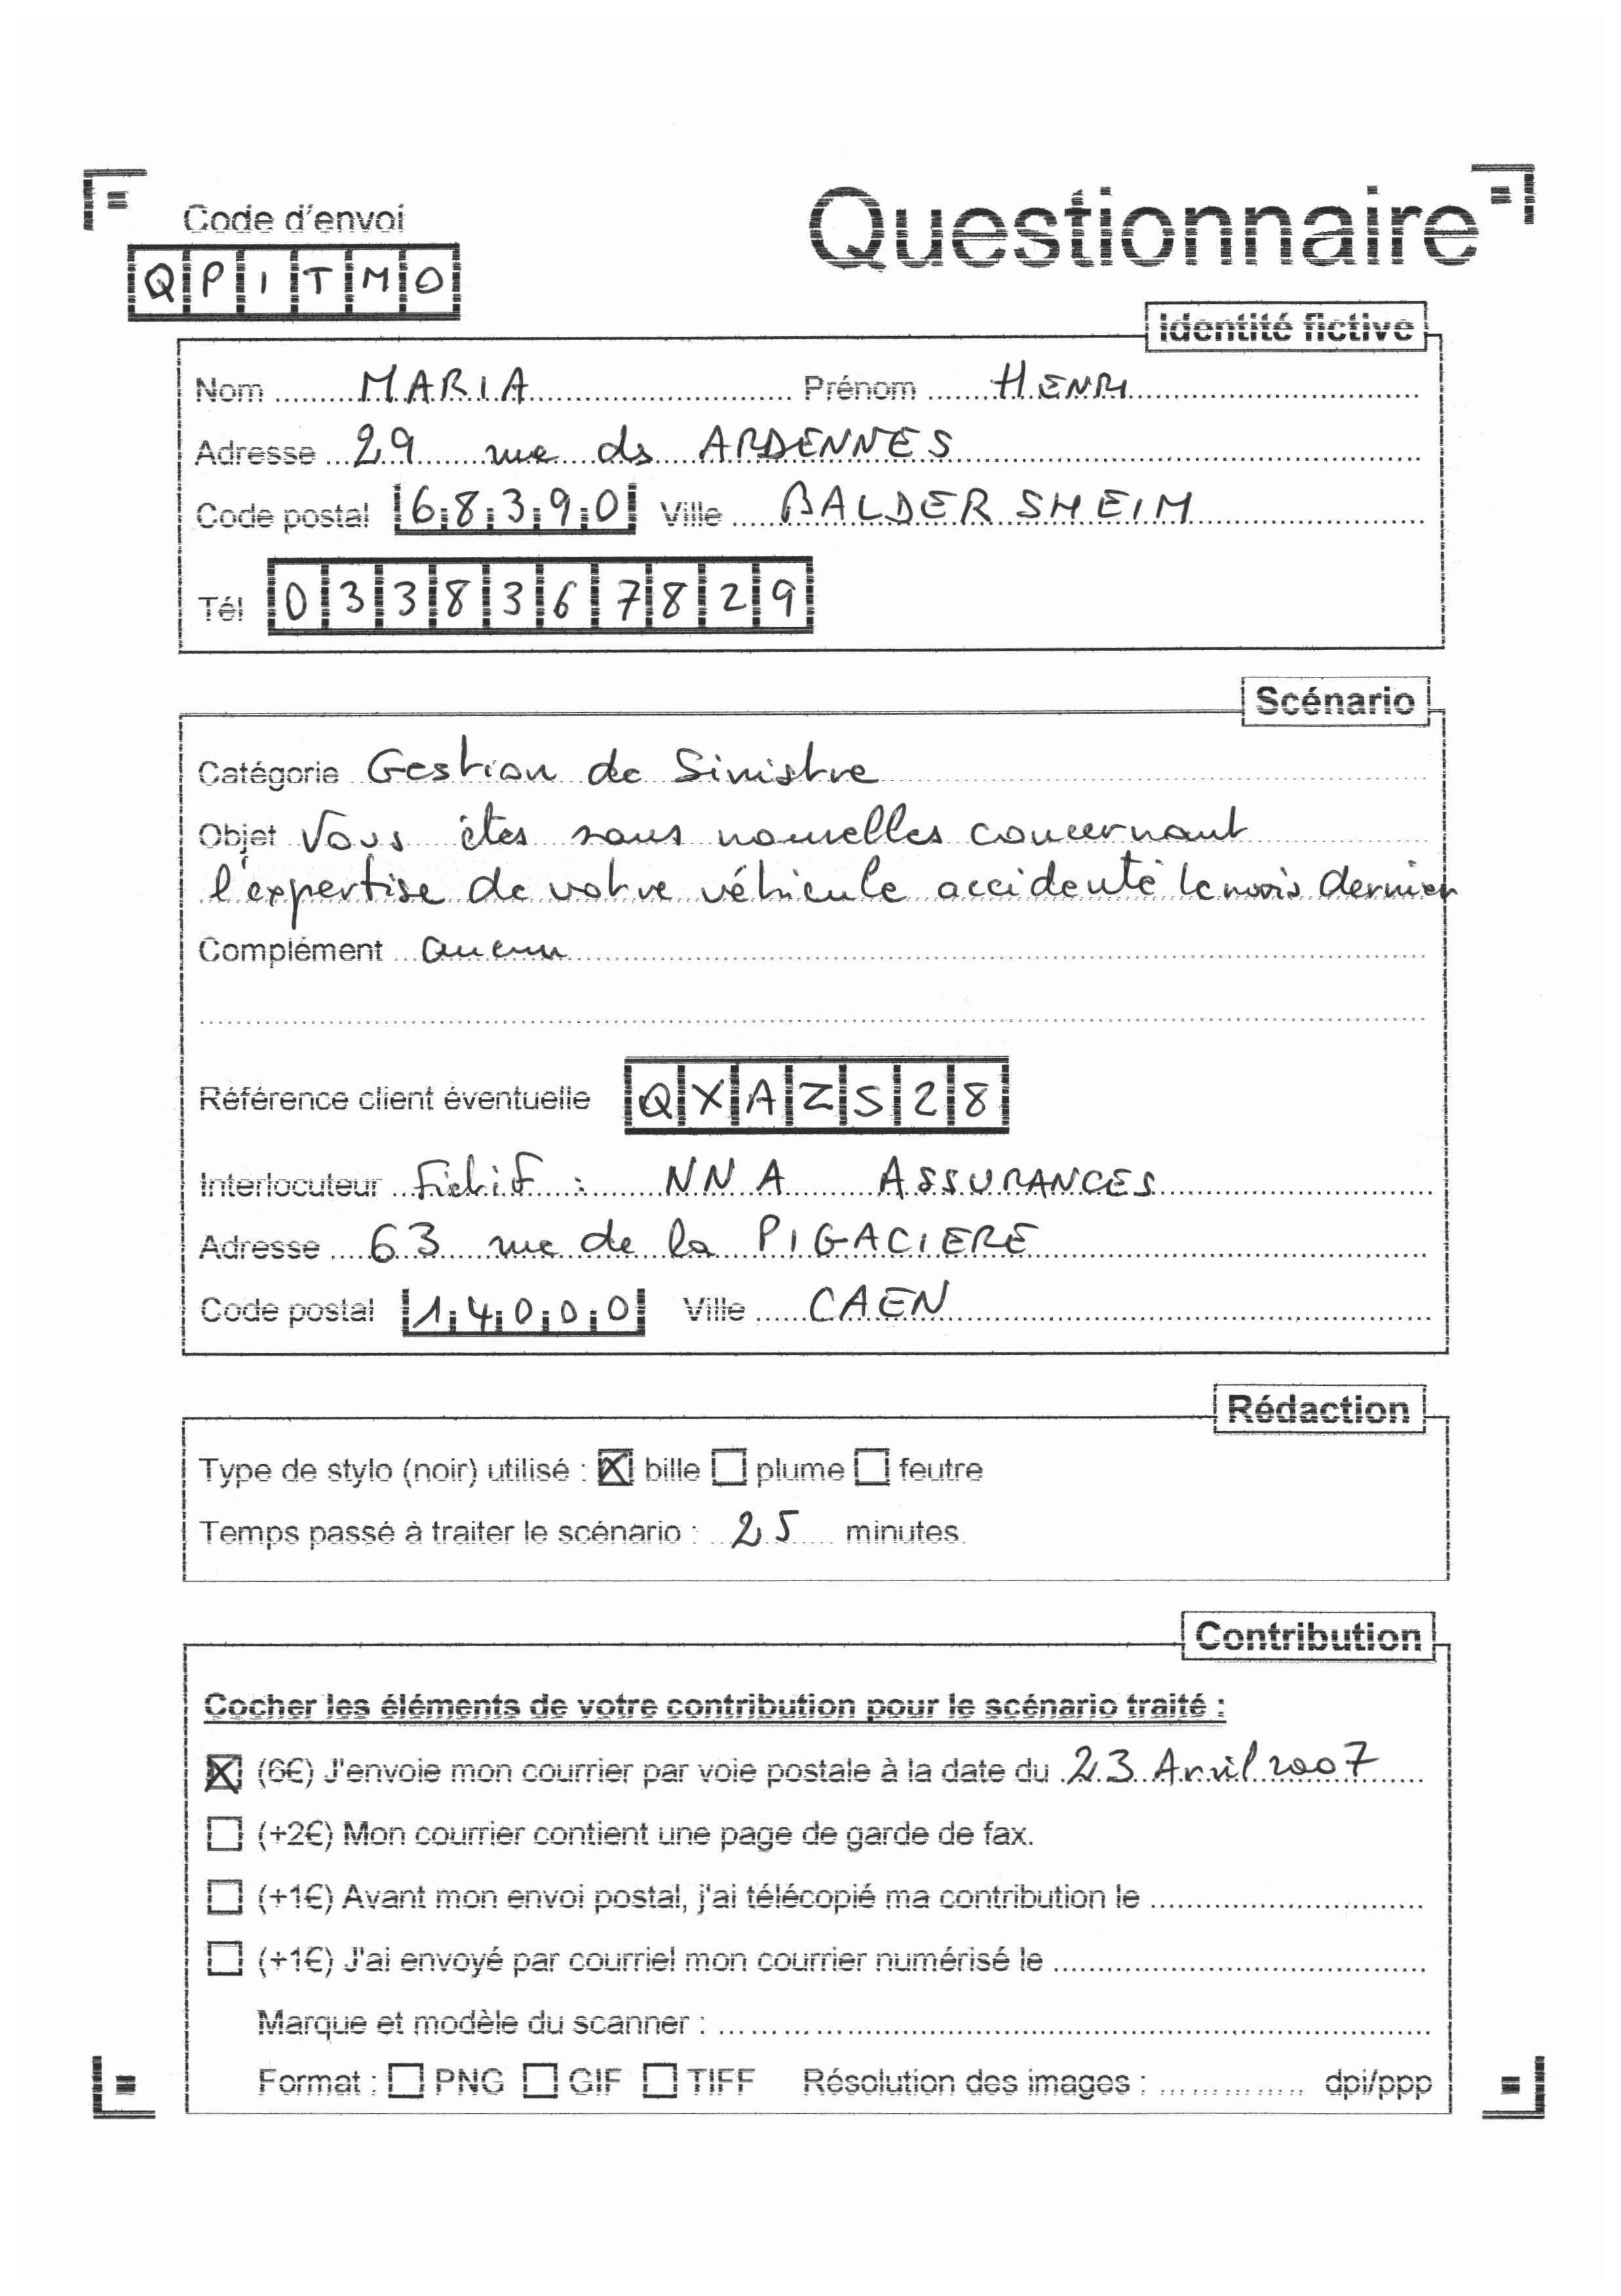 Code d'envoi
Questionnaire
QPITMO
Identité fictive
Nom MARIA Prénom HENRI
Adresse 29 rue des ARDENNES
Code postal 68390 Ville BALDERSHEIM
Tél 0338367829
Scénario
Catégorie Gestion de Sinistre
Objet Vous êtes sans nouvelles concernant
l'expertise de votre véhicule accidenté le mois dernier
Complément aucun
Référence client éventuelle QXAZS28
Interlocuteur Fictif : NNA ASSURANCES
Adresse 63 rue de la PIGACIERE
Code postal 14000 Ville CAEN
Rédaction
Type de stylo (noir) utilisé : ☒ bille ☐ plume ☐ feutre
Temps passé à traiter le scénario : 25 minutes.
Contribution
Cocher les éléments de votre contribution pour le scénario traité :
☒ (6€) J'envoie mon courrier par voie postale à la date du 23 Avril 2007
☐ (+2€) Mon courrier contient une page de garde de fax.
☐ (+1€) Avant mon envoi postal, j'ai télécopié ma contribution le
☐ (+1€) J'ai envoyé par courriel mon courrier numérisé le
Marque et modèle du scanner :
Format : ☐ PNG ☐ GIF ☐ TIFF Résolution des images : dpi/ppp